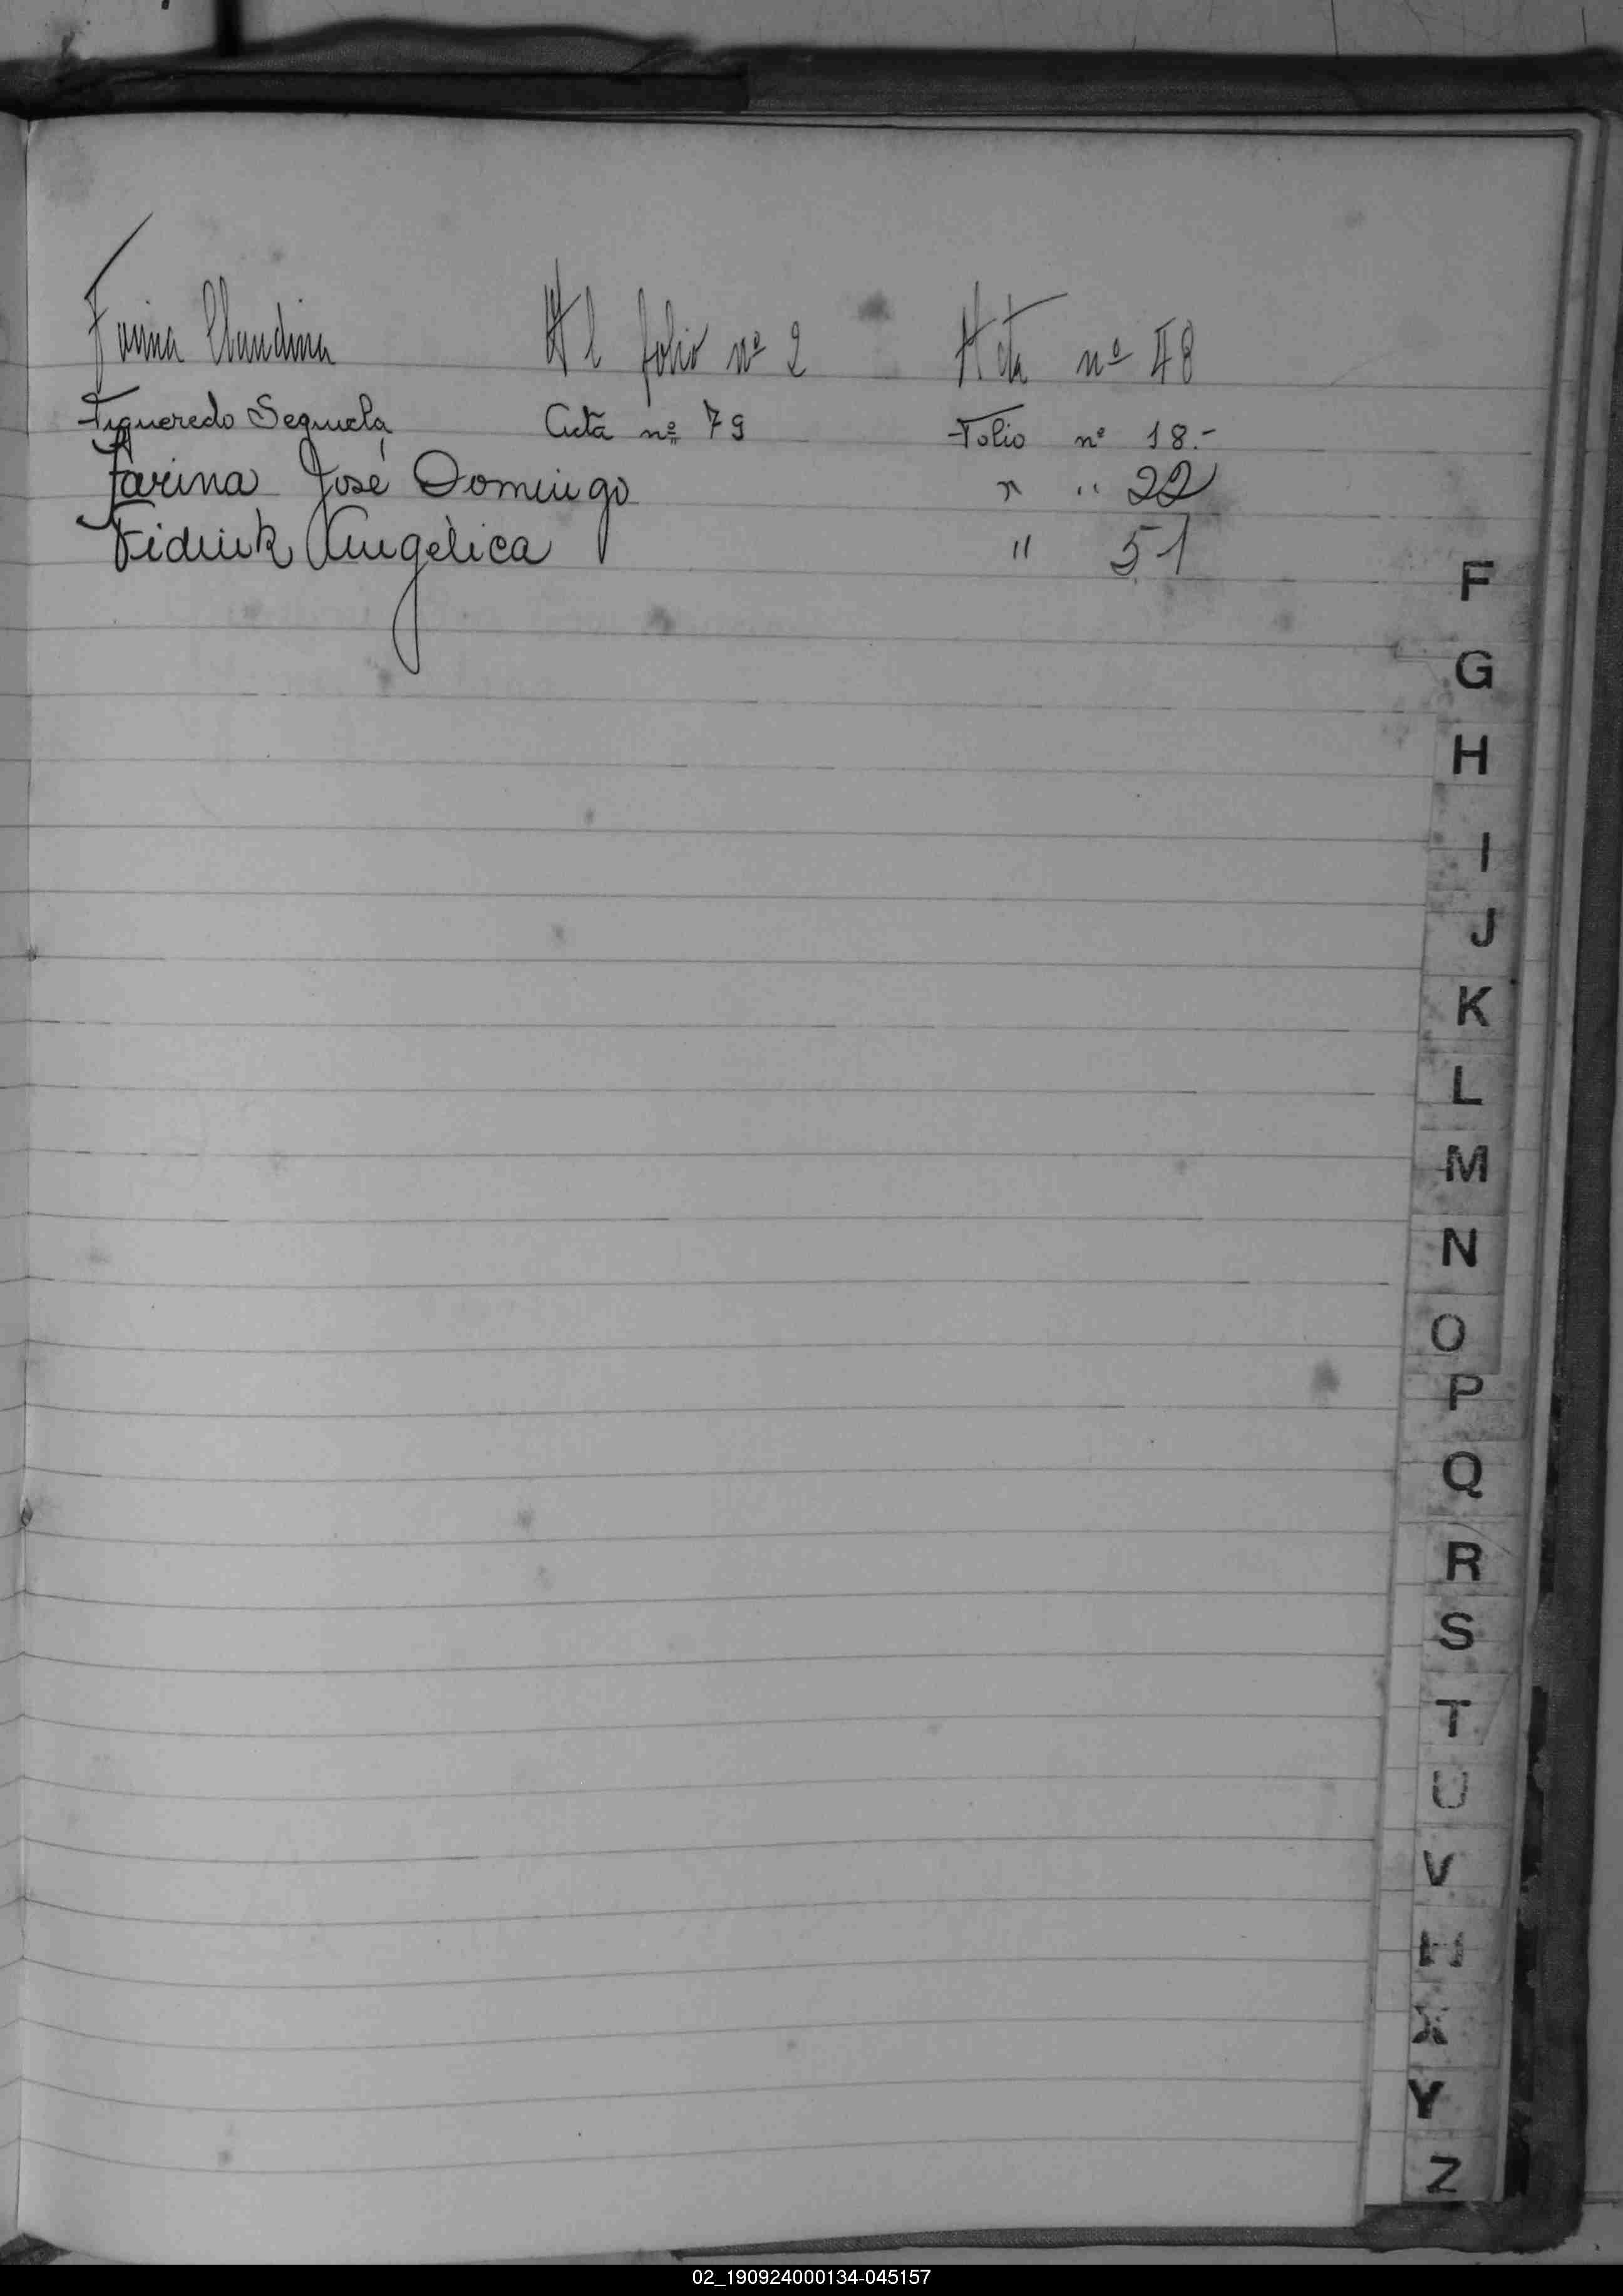 Farina Claudina Al folio nº 2 Acta nº 48
Figueredo Acta nº 79 Folio nº 18.-
Farina José Domingo " " 22
Angélica " 51
F
G
H
I
J
K
L
M
N
O
P
Q
R
S
T
U
V
X
Y
Z
02_190924000134-045157